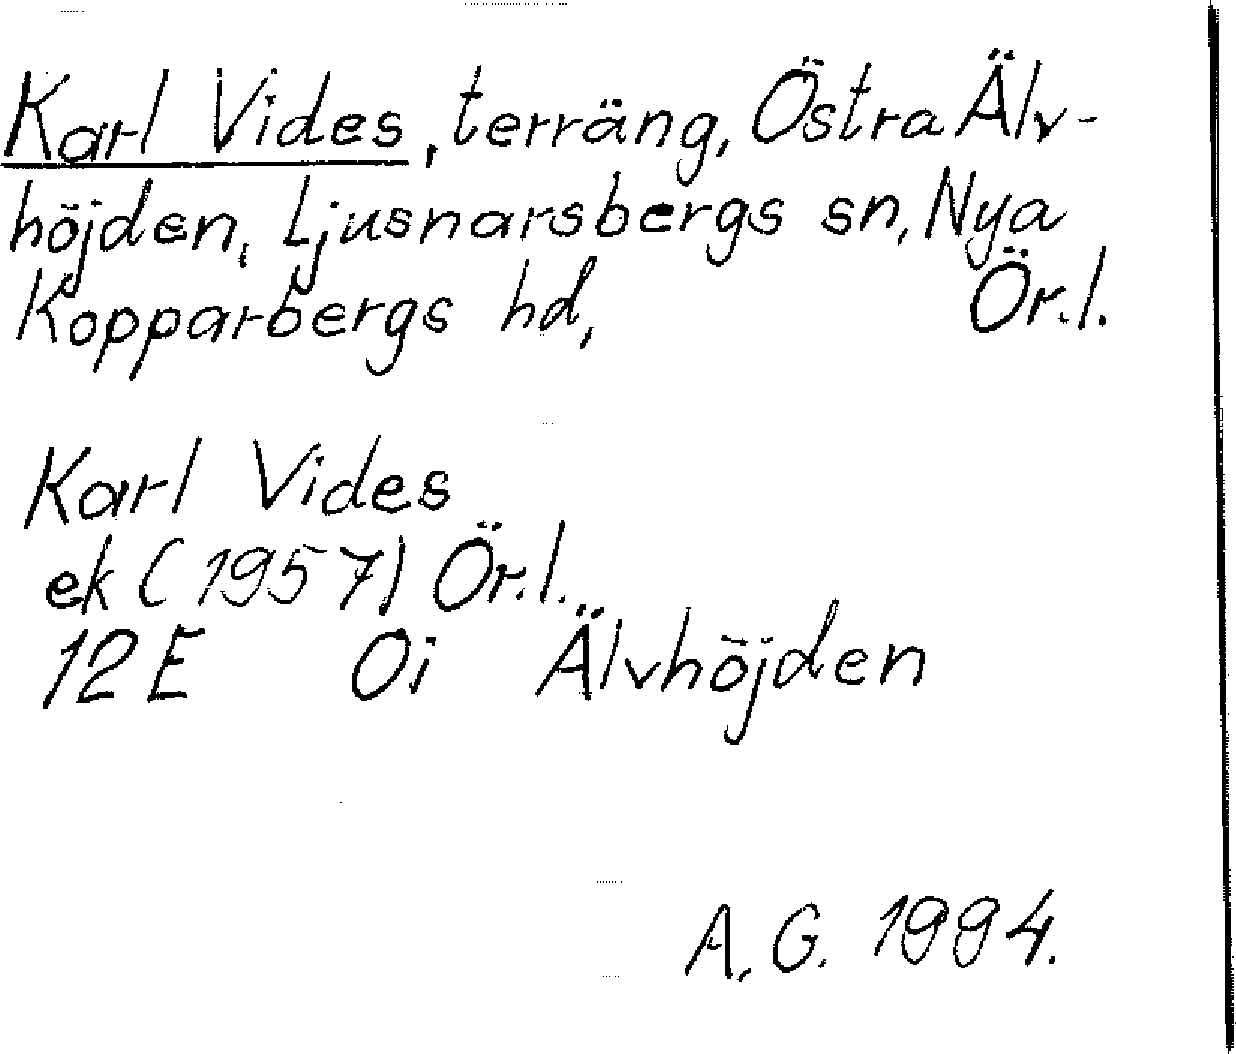 Karl Vides, terräng, Östra Älv-
höjden, Ljusnarsbergs sn, Nya
Kopparbergs hd, Ör.l.
Karl Vides
ek (1957) Ör.l.
12E 0i Älvhöjden
A.G. 1994.